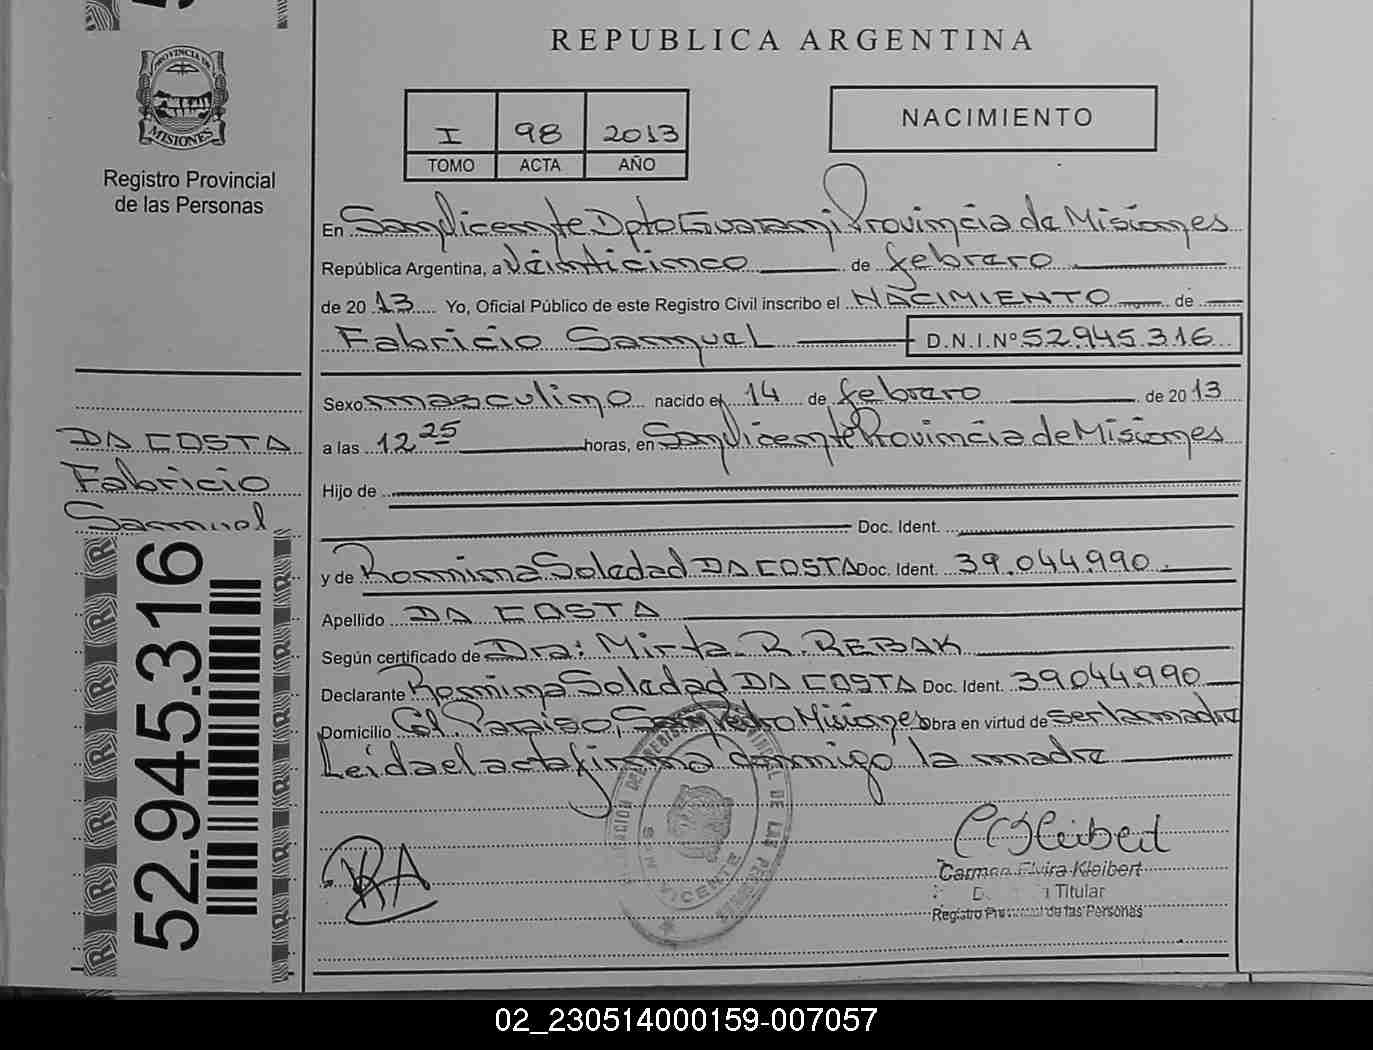 PROVINCIA DE
MISIONES
Registro Provincial
de las Personas
REPUBLICA ARGENTINA
I 98 2013
TOMO ACTA AÑO
NACIMIENTO
En San Vicente Dpto Guarani Provincia de Misiones
República Argentina, a Veinticinco de febrero
de 20 13 Yo, Oficial Público de este Registro Civil inscribo el NACIMIENTO de
Fabricio Samuel D.N.I.Nº 52.945.316
Sexo masculino nacido el 14 de febrero de 20 13
a las 12 25 horas, en San Vicente Provincia de Misiones
Hijo de
Doc. Ident.
y de Rommina Soledad DA COSTA Doc. Ident. 39.044.990
Apellido DA COSTA
Según certificado de Dra: Mirta R. REBAK
Declarante Rommina Soledad DA COSTA Doc. Ident. 39044990
Domicilio Paraiso, San Pedro Misiones Obra en virtud de ser la madre
Leida el acta firma conmigo la madre
DA COSTA
Fabricio
Samuel
52.945.316
SAN VICENTE
Carmen Elvira Kleibert
Titular
Registro Provincial de las Personas
02_230514000159-007057